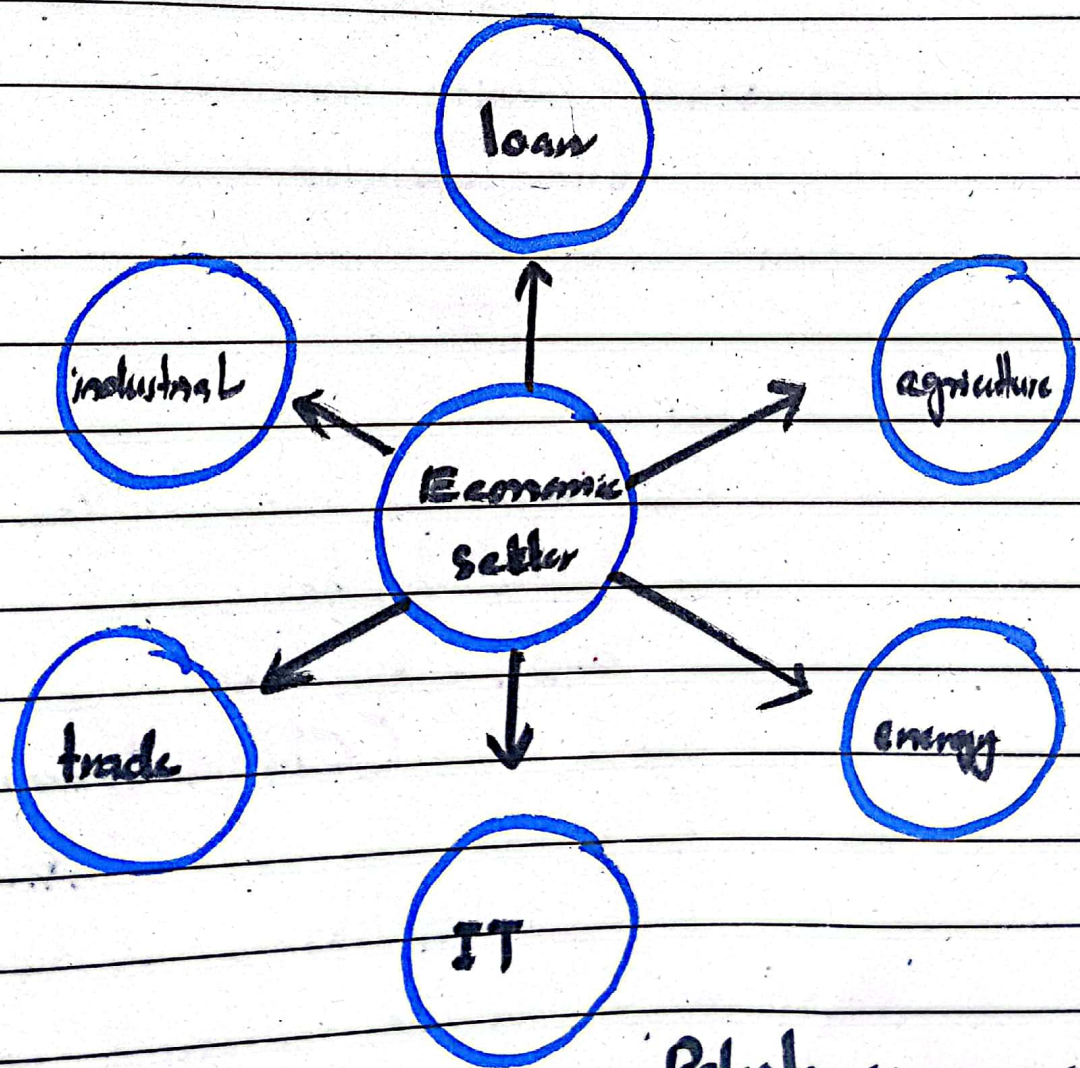 loan
industrial
agriculture
Economic
sektor
trade
energy
IT